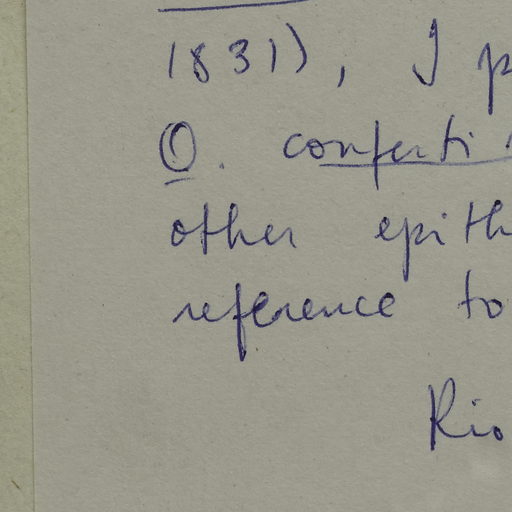 1831), I p
O. conferti
other epith
reference to
Rio